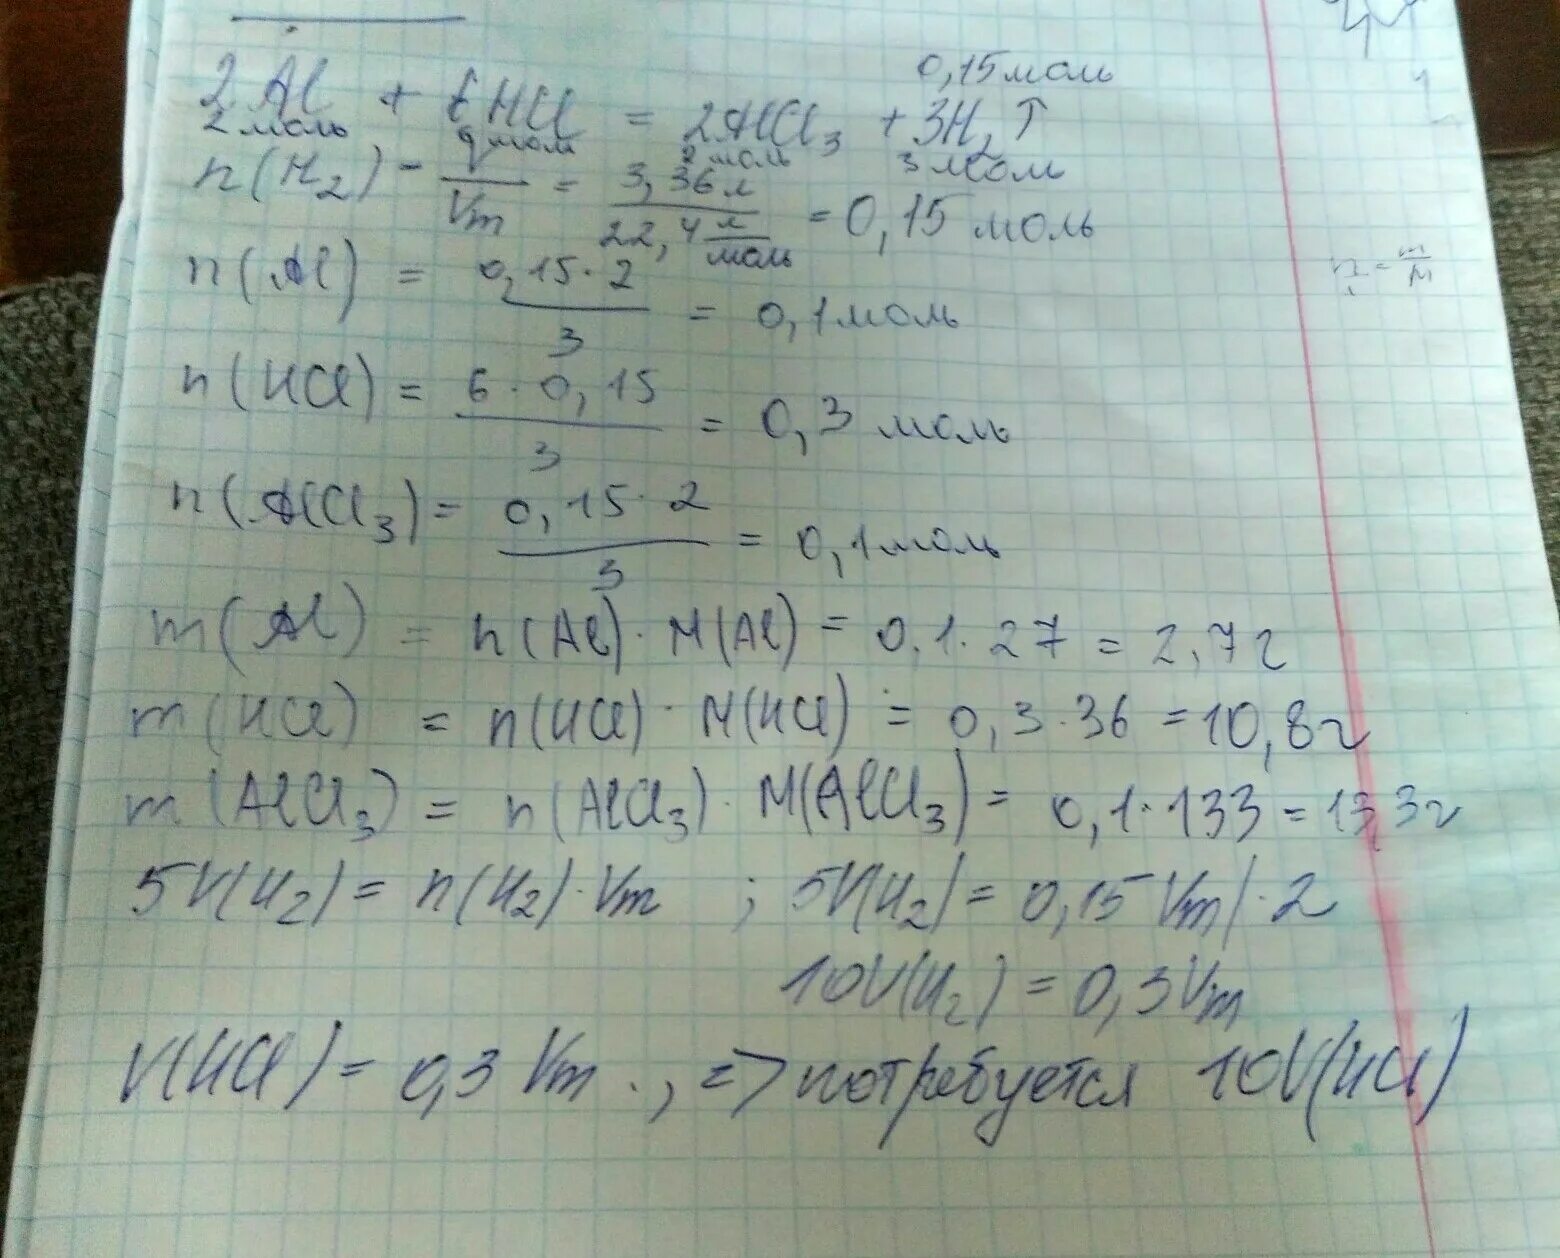 0,15 моль
2Al + 6HCl = 2AlCl3 + 3H2↑
2 моль моль 3 мол
n(H2) - V/Vm = 3,36 л / 22,4 л/моль = 0,15 моль
n = m/M
n(Al) = 0,15·2 / 3 = 0,1 моль
n(HCl) = 6·0,15 / 3 = 0,3 моль
n(AlCl3) = 0,15·2 / 3 = 0,1 моль
m(Al) = n(Al)·M(Al) = 0,1·27 = 2,7г
m(HCl) = n(HCl)·M(HCl) = 0,3·36 = 10,8г
m(AlCl3) = n(AlCl3)·M(AlCl3) = 0,1·133 = 13,3г
5V(H2) = n(H2)·Vm ; 5V(H2) = 0,15 Vm |·2
10V(H2) = 0,3Vm
V(HCl) = 0,3 Vm ., => потребуется 10V(HCl)